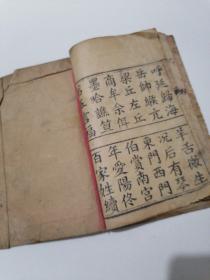 呼延歸海
羊舌微生
岳帥緱亢
況后有琴
梁丘左丘
東門西門
商牟佘佴
伯賞南宮
墨哈譙笪
年愛陽佟
第五言福
百家姓續